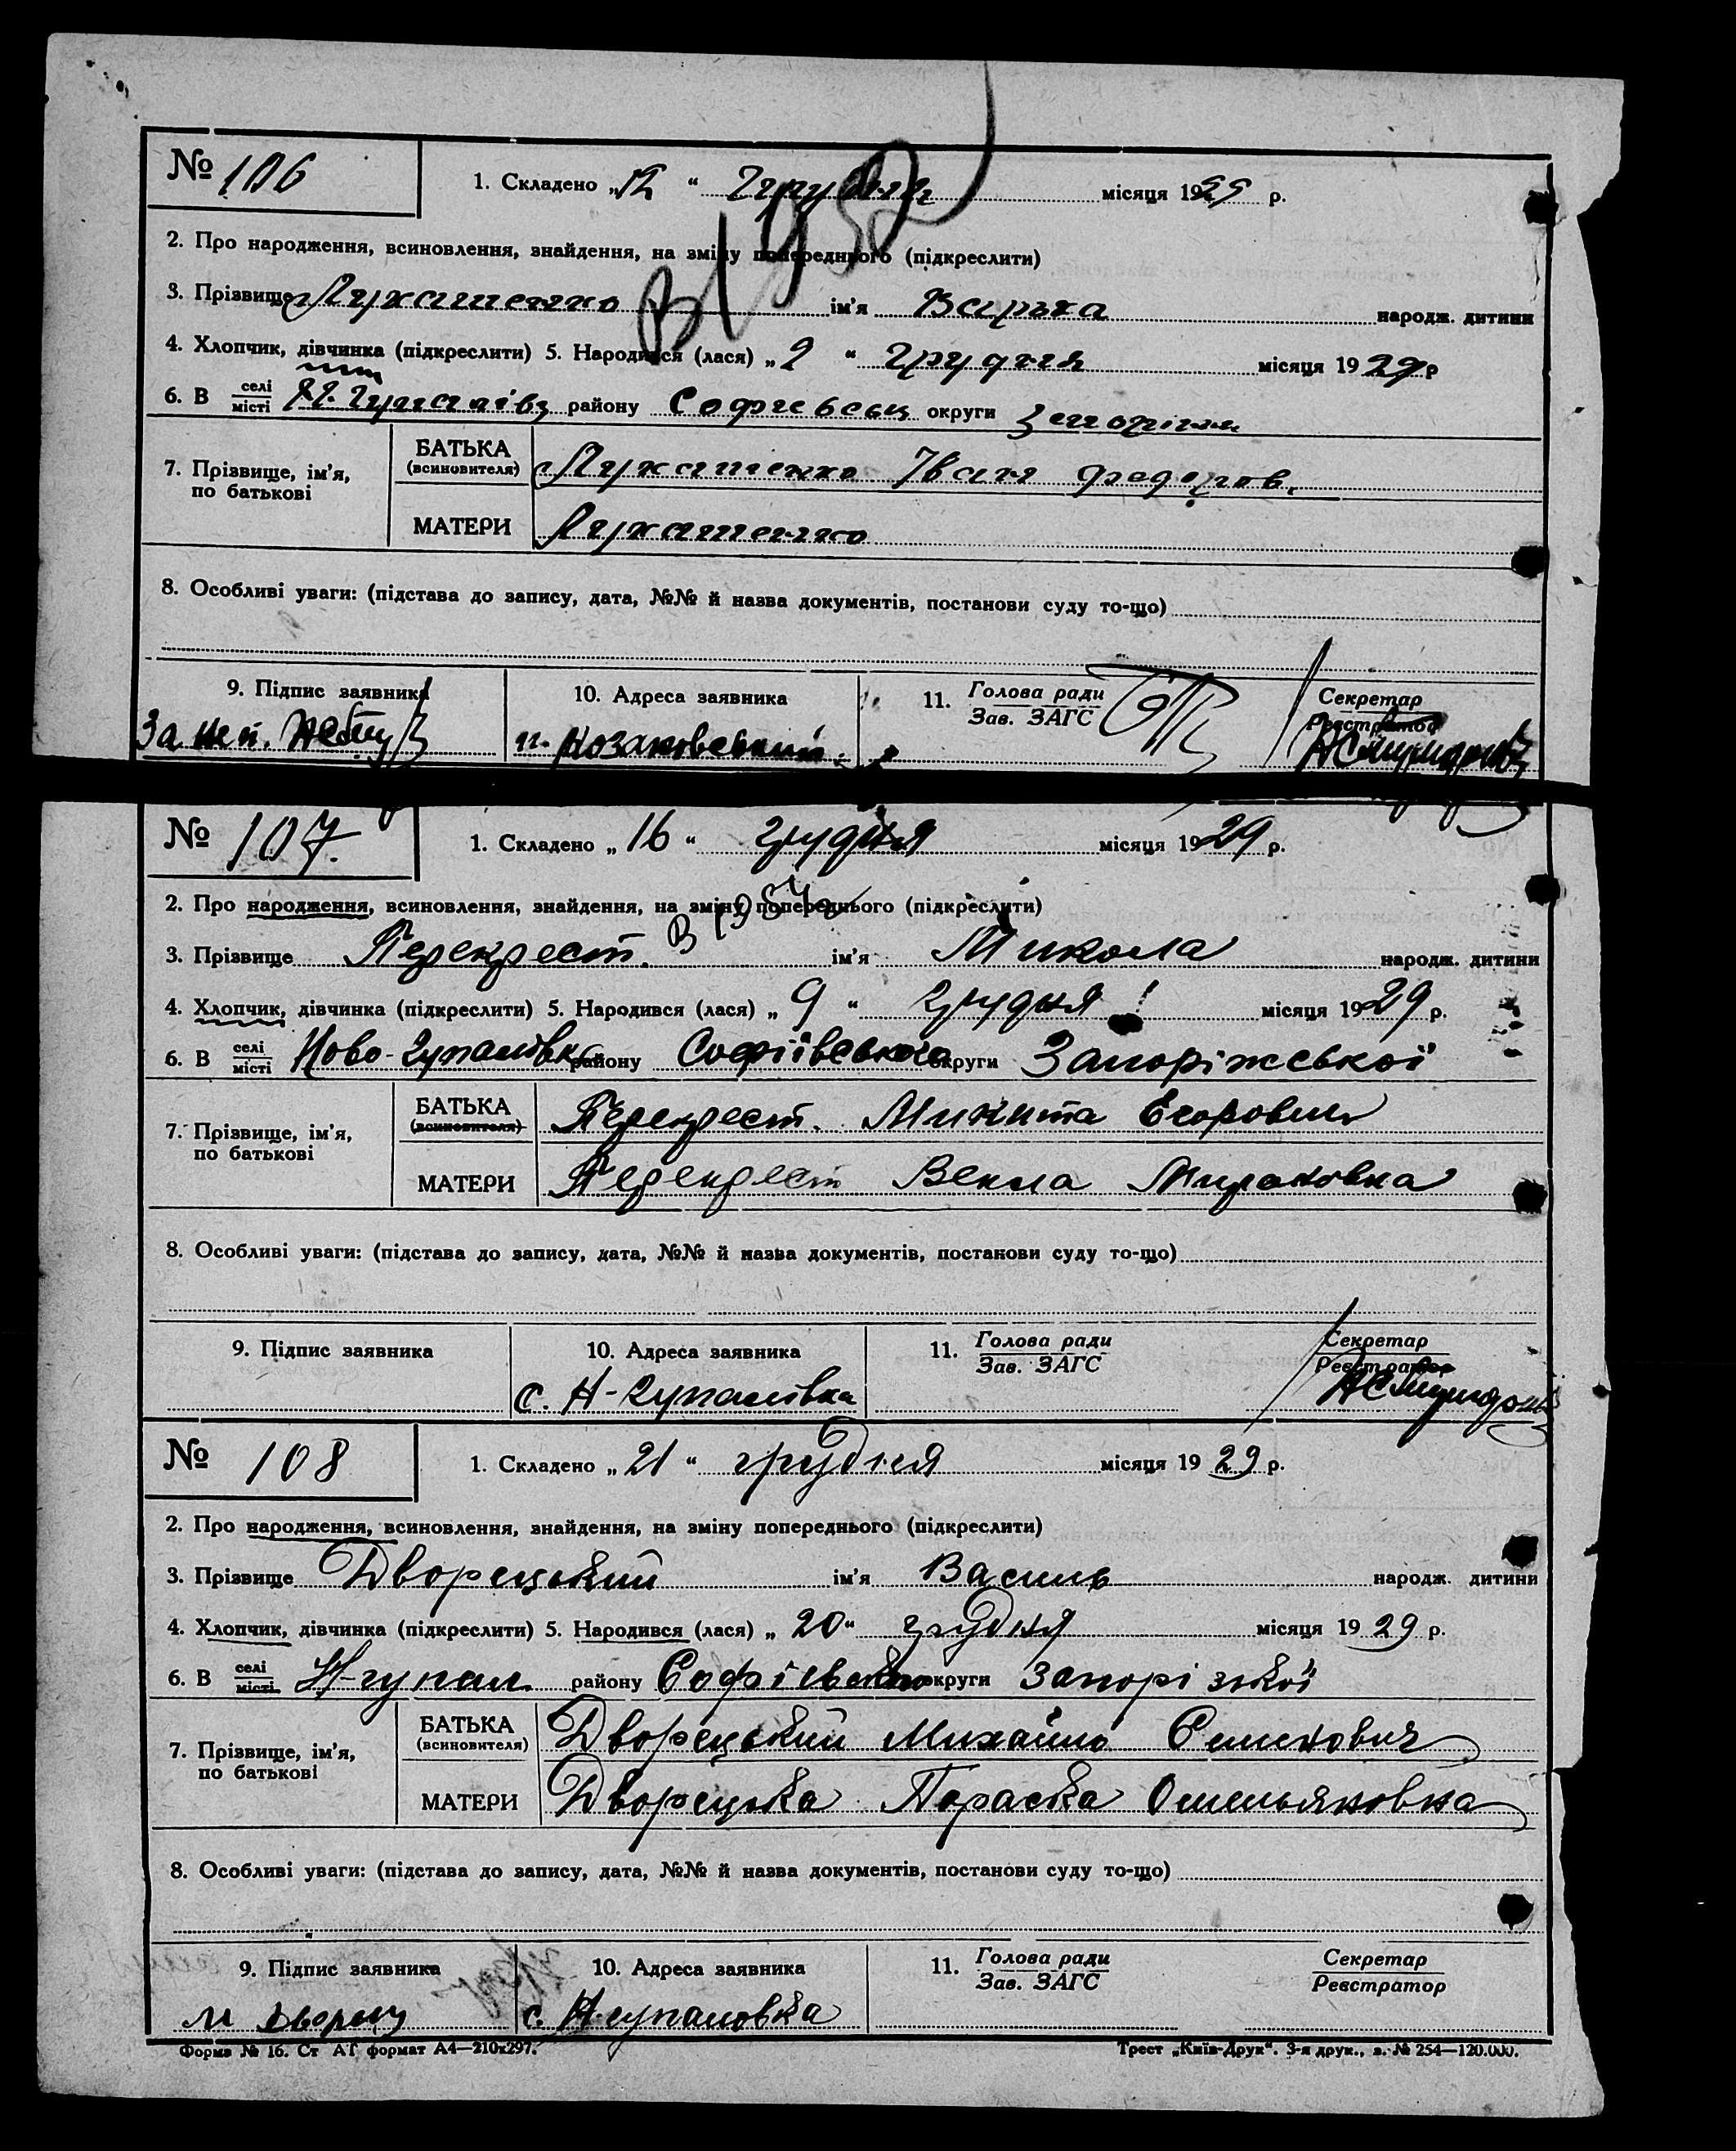 № 106 1. Складено „12“ Грудня місяця 1929 р.
2. Про народження, всиновлення, знайдення, на зміну попереднього (підкреслити)
В 1952
3. Прізвище Лукашенко ім'я Варька народж. дитини
4. Хлопчик, дівчинка (підкреслити) 5. Народився (лася) „2“ грудня місяця 1929 р
6. В селі місті району Софиевськ округи
7. Прізвище, ім'я, по батькові БАТЬКА (всиновителя) Лукашенко Іван Федоров.
МАТЕРИ Лукашенко
8. Особливі уваги: (підстава до запису, дата, №№ й назва документів, постанови суду то-що)
9. Підпис заявника 10. Адреса заявника 11. Голова ради Зав. ЗАГС Секретар Реєстратор
За неп.
№ 107. 1. Складено „16“ грудня місяця 1929 р.
2. Про народження, всиновлення, знайдення, на зміну попереднього (підкреслити)
3. Прізвище Перекрест. ім'я Микола народж. дитини
4. Хлопчик, дівчинка (підкреслити) 5. Народився (лася) „9“ грудня ! місяця 1929 р.
6. В селі місті Ново-Гупалівка району Софіївського округи Запоріжської
7. Прізвище, ім'я, по батькові БАТЬКА (всиновителя) Перекрест. Микита Егорович
МАТЕРИ Перекрест Векла
8. Особливі уваги: (підстава до запису, дата, №№ й назва документів, постанови суду то-що)
9. Підпис заявника 10. Адреса заявника 11. Голова ради Зав. ЗАГС Секретар Реєстратор
с. Н-Гупалівка
№ 108 1. Складено „21“ грудня місяця 1929 р.
2. Про народження, всиновлення, знайдення, на зміну попереднього (підкреслити)
3. Прізвище Дворецький ім'я Василь народж. дитини
4. Хлопчик, дівчинка (підкреслити) 5. Народився (лася) „20“ грудня місяця 1929 р.
6. В селі місті Н-гупал. району Софієвсько округи Запорізької
7. Прізвище, ім'я, по батькові БАТЬКА (всиновителя) Дворецький Михайло Семенович
МАТЕРИ Дворецька Параска Омельяновна
8. Особливі уваги: (підстава до запису, дата, №№ й назва документів, постанови суду то-що)
9. Підпис заявника 10. Адреса заявника 11. Голова ради Зав. ЗАГС Секретар Реєстратор
М Дворец с. Н-гупаловка
Форма № 16. Ст АГ формат А4—210х297. Трест „Київ-Друк“. 3-я друк., з. № 254—120.000.